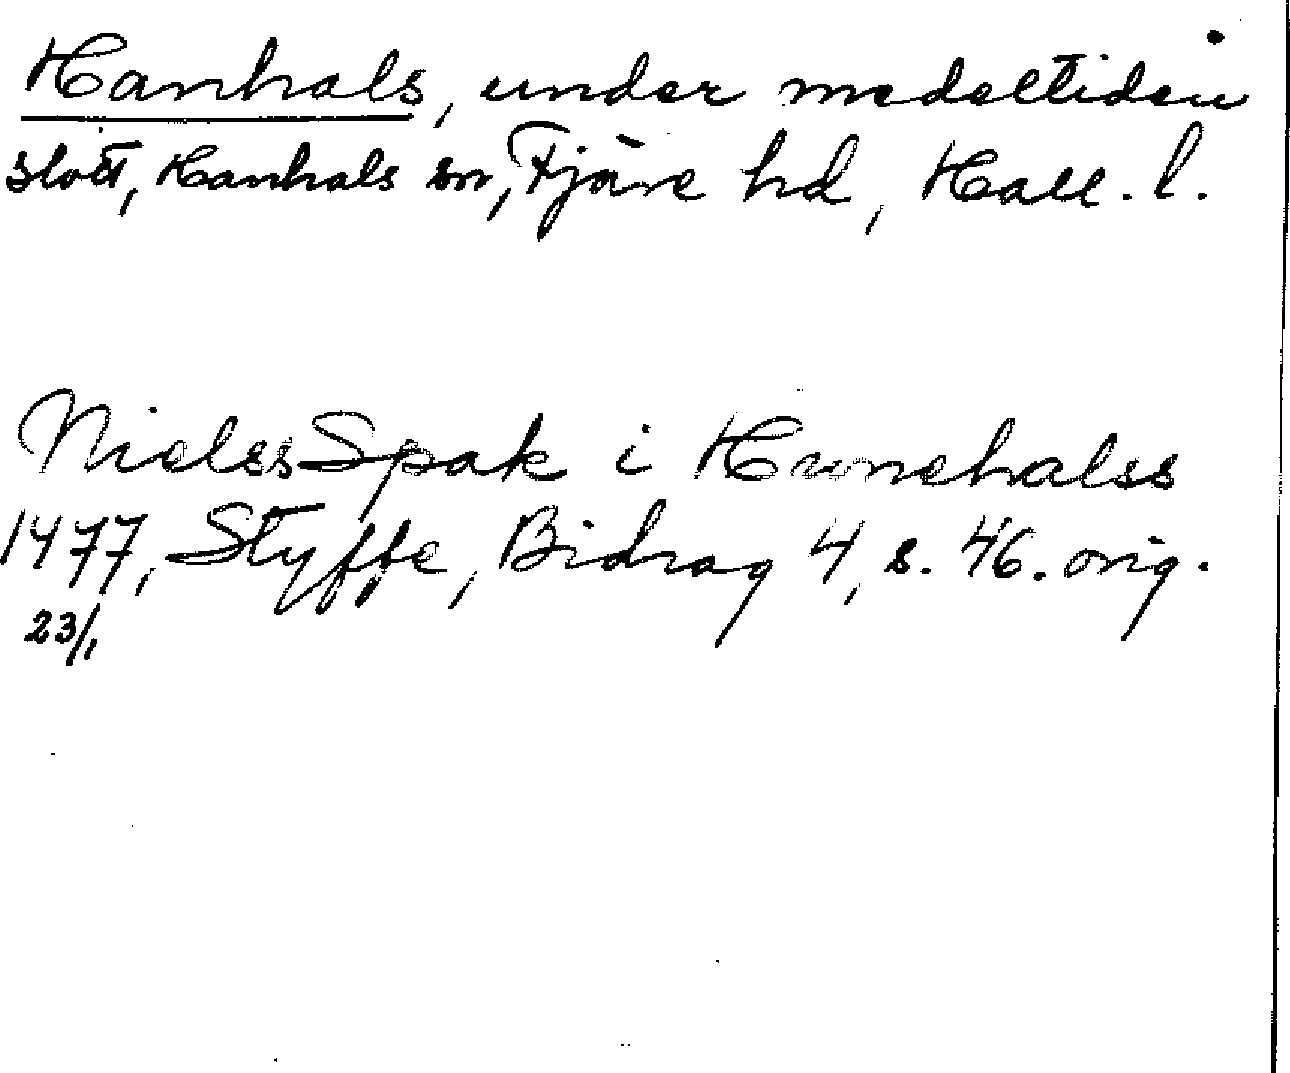 Hanhals, under medeltiden
slott, Hanhals sn, Fjäre hd, Hall. l.
Nielss Spak i Hunehalss
1477, Styffe, Bidrag 4, s. 46. orig.
23/1